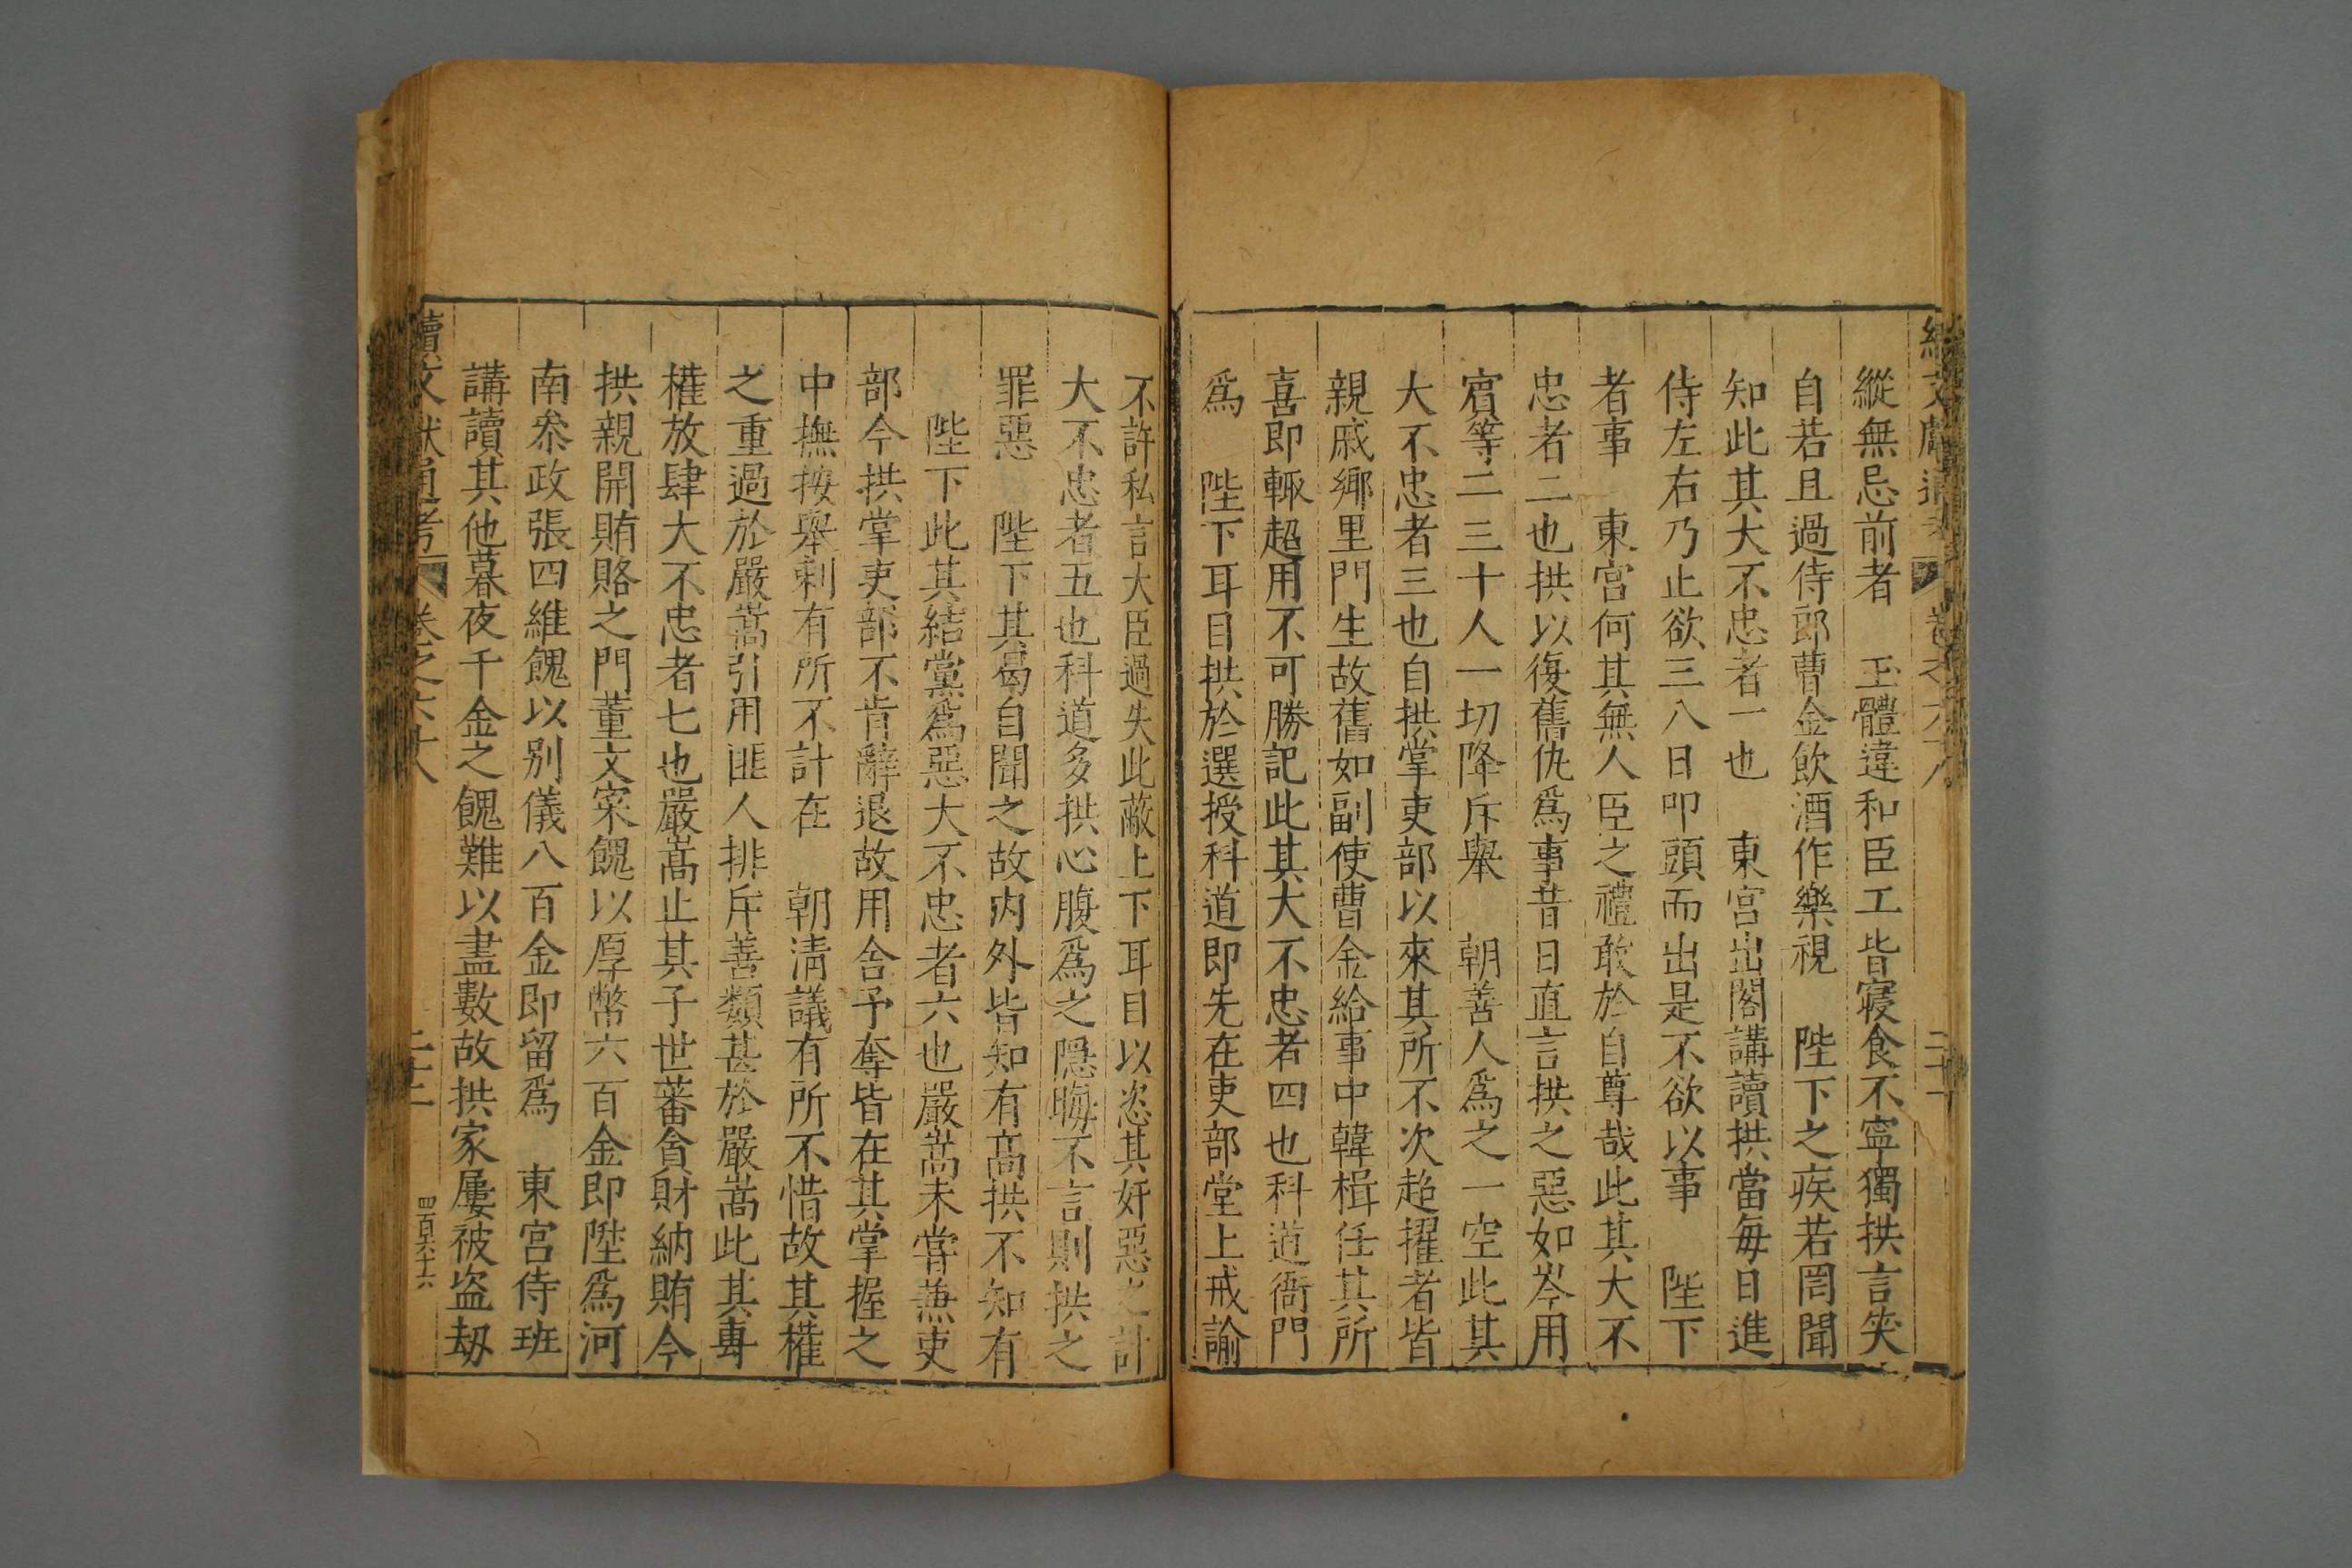 縱無忌前者　玉體違和臣工皆寢食不寧獨拱言笑
自若且過侍郎曹金飲酒作樂視　陛下之疾若罔聞
知此其大不忠者一也　東宮出閣講讀拱當每日進
侍左右乃止欲三八日叩頭而出是不欲以事　陛下
者事　東宮何其無人臣之禮敢於自尊哉此其大不
忠者二也拱以復舊仇為事昔日直言拱之惡如岑用
賓等二三十人一切降斥舉　朝善人為之一空此其
大不忠者三也自拱掌吏部以來其所不次超擢者皆
親戚鄉里門生故舊如副使曹金給事中韓楫任其所
喜即輙超用不可勝記此其大不忠者四也科道衙門
為　陛下耳目拱於選授科道即先在吏部堂上戒諭
不許私言大臣過失此蔽上下耳目以恣其奸惡之計
大不忠者五也科道多拱心腹為之隱晦不言則拱之
罪惡　陛下其曷自聞之故內外皆知有高拱不知有
陛下此其結黨為惡大不忠者六也嚴嵩未嘗兼吏
部今拱掌吏部不肯辭退故用舍予奪皆在其掌握之
中撫按舉刺有所不計在　朝清議有所不惜故其權
之重過於嚴嵩引用匪人排斥善類甚於嚴嵩此其專
權放肆大不忠者七也嚴嵩止其子世蕃貪財納賄今
拱親開賄賂之門董文寀餽以厚幣六百金即陞為河
南叅政張四維餽以別儀八百金即留為　東宮侍班
講讀其他暮夜千金之餽難以盡數故拱家屢被盜刼
續文獻通考　卷之六十八
四百六十六